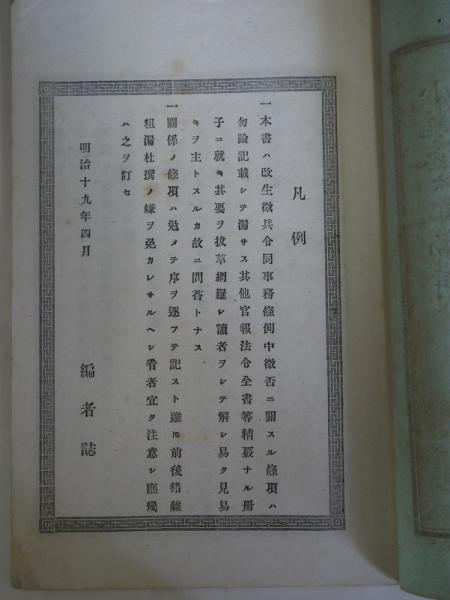 凡例
一本書ハ改生徴兵令同事務條例中徴否ニ關スル條項ハ
勿論記載シテ漏サス其他官報法令全書等精覈ナル冊
子ニ就キ其要ヲ拔萃網羅シ讀者ヲシテ解シ易ク見易
キヲ主トスルカ故ニ問荅トナス
一關係ノ條項ハ勉メテ序ヲ逐フテ記スト雖𪜈前後錯雜
粗漏杜撰ノ嫌ヲ免カレサルヘシ看者宜ク注意シ庶幾
ハ之ヲ訂セ
明治十九年四月
編者誌